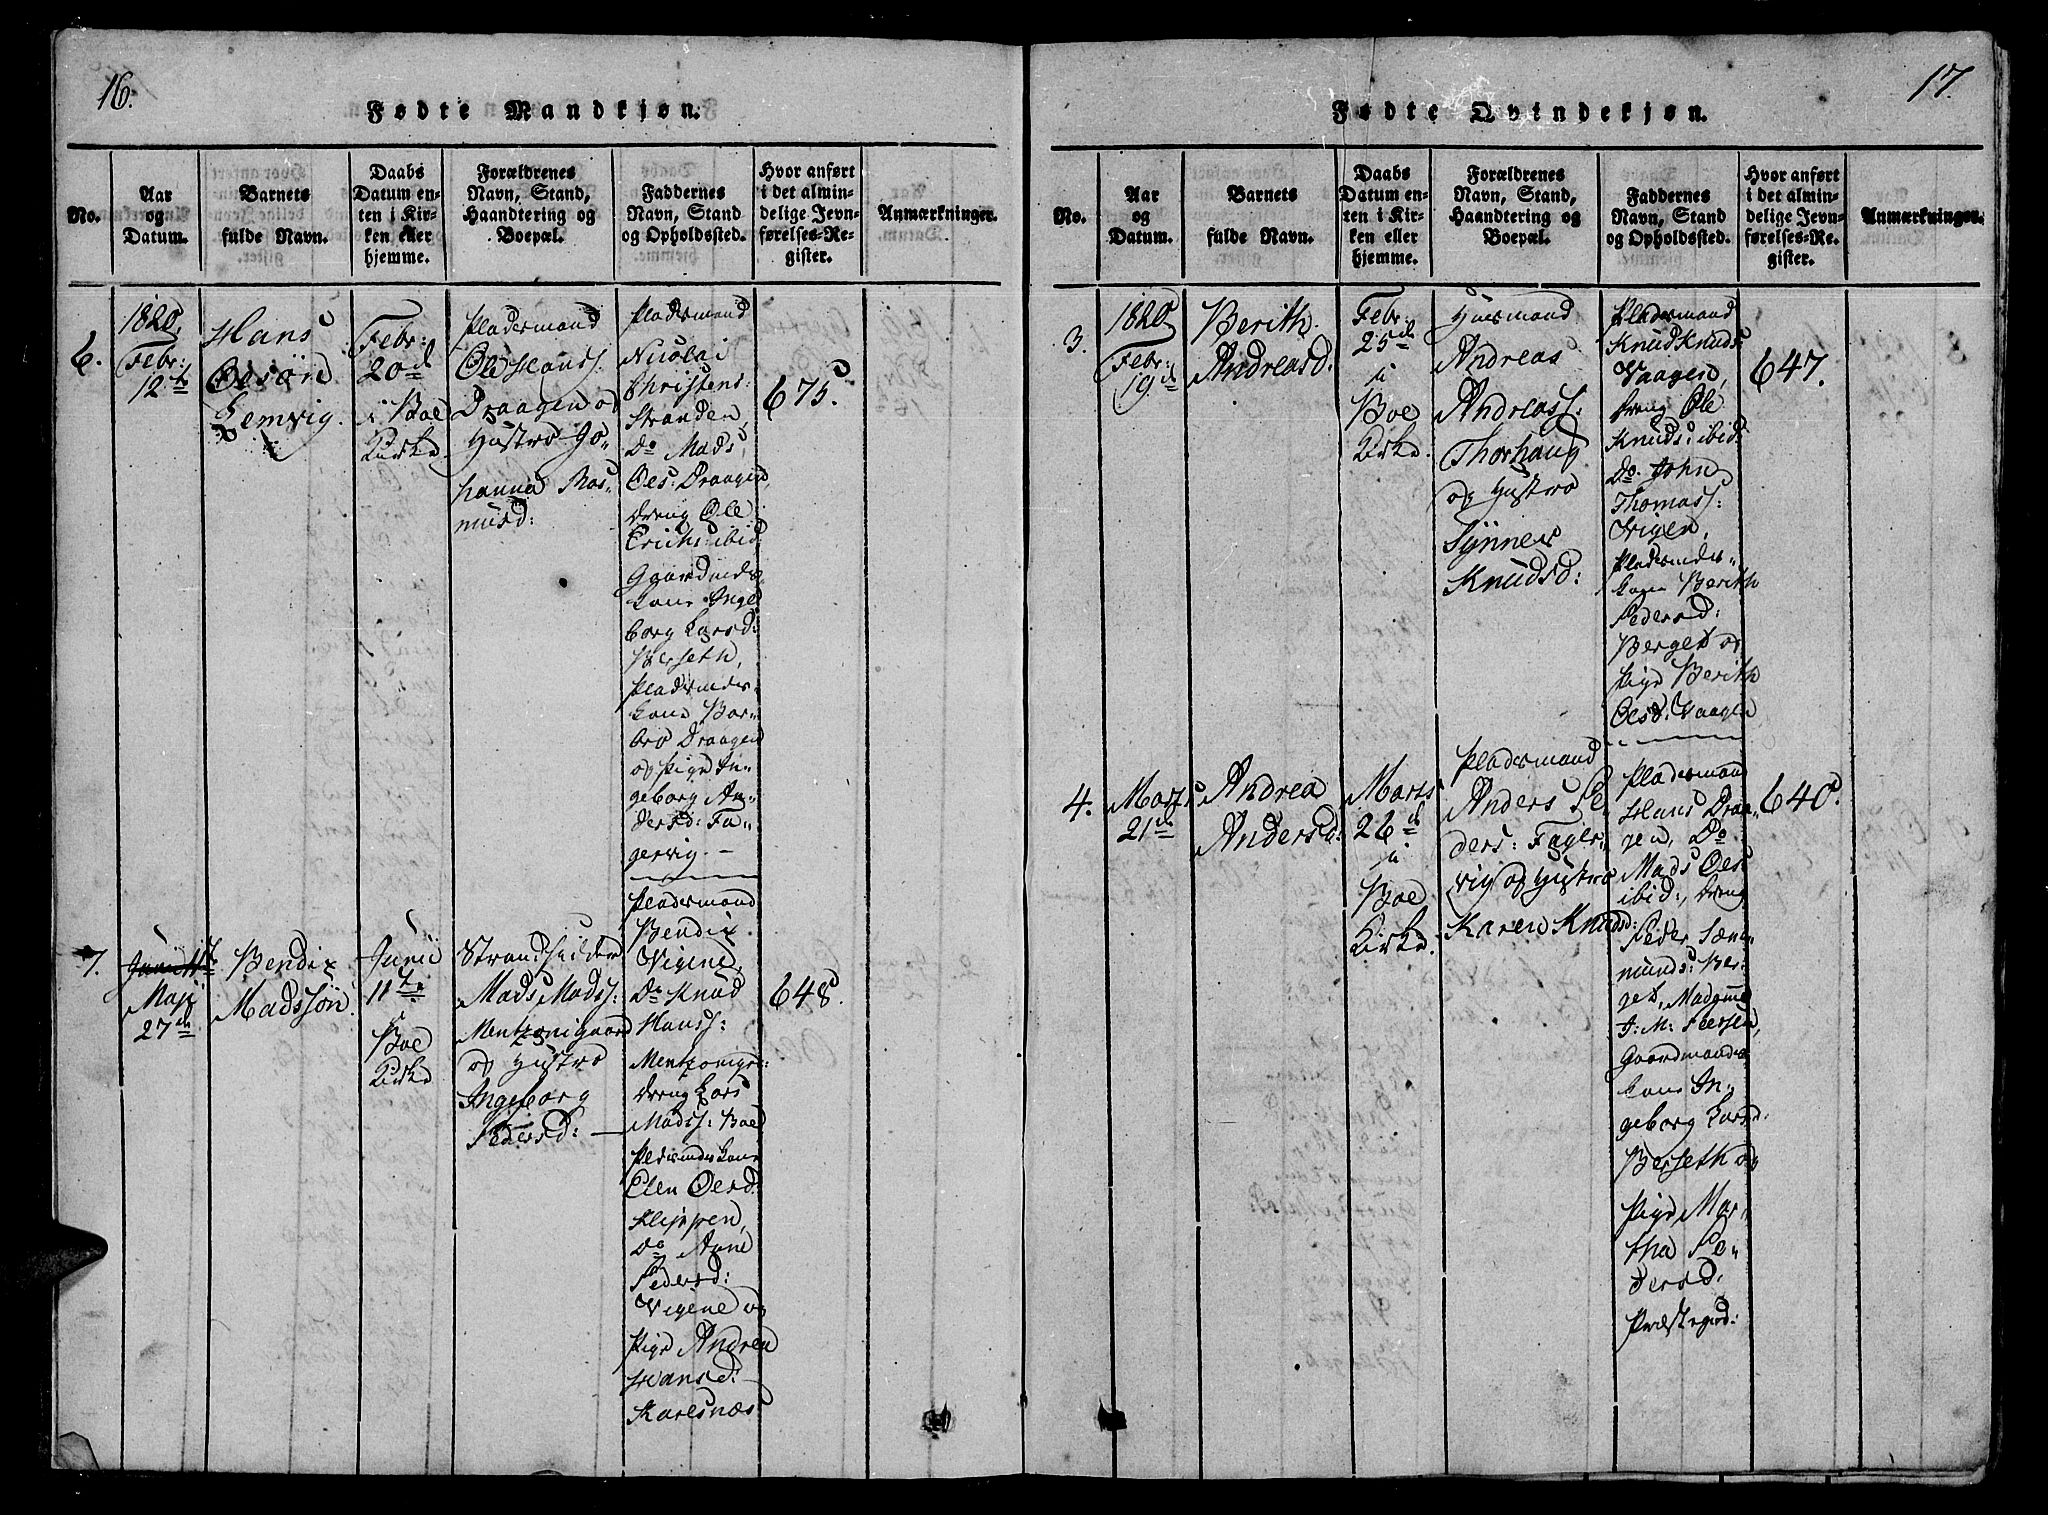 16.
Fødte Mandkjøn.
No.
Aar
og
Datum.
Barnets
fulde Navn.
Daabs
Datum en-
ten i Kir-
ken eller
hjemme.
Forældrenes
Navn, Stand,
Haandtering og
Boepæl.
Faddernes
Navn, Stand
og Opholdssted.
Hvor anført
i det almin-
delige Jevn-
førelses-Re-
gister.
Anmærkninger.
6.
1820,
Febr:
12te
Hans
Olesøn
Lemvig.
Febr:
20de
i Boe
Kirke.
Pladsmand
Ole Hanss:
Draagen og
Hustro Jo-
hanna Ras-
musd:
Pladsmand
Nicolai
Christens:
Stranden,
Do Mads
Oles: Draagen,
dreng Ole
Erichs: ibid:
Gaardmds-
kone Inge-
borg Larsd:
Berseth,
Pladsmds-
kone Bar-
bro Draagen
og Pige In-
geborg An-
dersd: Fa-
gervig. —
675.
7.
Maji
27de
Bendix
Madssøn.
Junii
11te
i
Boe
Kirke
Strandsidder
Mads Madss:
Mentzonigaard
og Hustro
Ingeborg
Pedersd: —
Pladsmand
Bendix
Vigene,
Do Knud
Hanss:
Mentzonigr:
dreng Lars
Madss: Boe
Pladsmdskone
Elen Olesd:
Klippen,
Do Anne
Pedersd:
Vigene og
Pige Andrea
Hansd:
Karesnæs
648.
17.
Fødte Qvindekjøn.
No.
Aar
og
Datum.
Barnets
fulde Navn.
Daabs
Datum en-
ten i Kir-
ken eller
hjemme.
Forældrenes
Navn, Stand,
Haandtering og
Boepæl.
Faddernes
Navn, Stand
og Opholdssted.
Hvor anført
i det almin-
delige Jevn-
førelses-Re-
gister.
Anmærkninger.
3.
1820,
Febr:
19de
Berith
Andreasd.
Febr:
25de
i
Boe
Kirke.
Huusmand
Andreas
Andreass:
Thorhaug
og Hustro
Synner
Knudsd:
Pladsmand
Knud Knuds:
Vaagen,
dreng Ole
Knuds: ibid:
Do. John
Thomass:
Pladsmds-
kone Berith
Pedersd:
Berget og
Pige Berith
Olesd: Vaagen
647.
4.
Marts
21de
Andrea
Andersd:
Marts
26de
i
Boe
Kirke.
Pladsmand
Anders Pe-
ders: Fager-
vig og Hustro
Karen Knudsd:
Pladsmand
Hans Draa-
gen, Do
Mads Oles:
ibid:, dreng
Peder Sæm-
munds: Ber-
get, Madame
J: M: Peersen,
Gaardmands-
kone In-
geborg Larsd:
Berseth og
Pige Mar-
tha Pe-
dersd:
Præstegrd:
640.